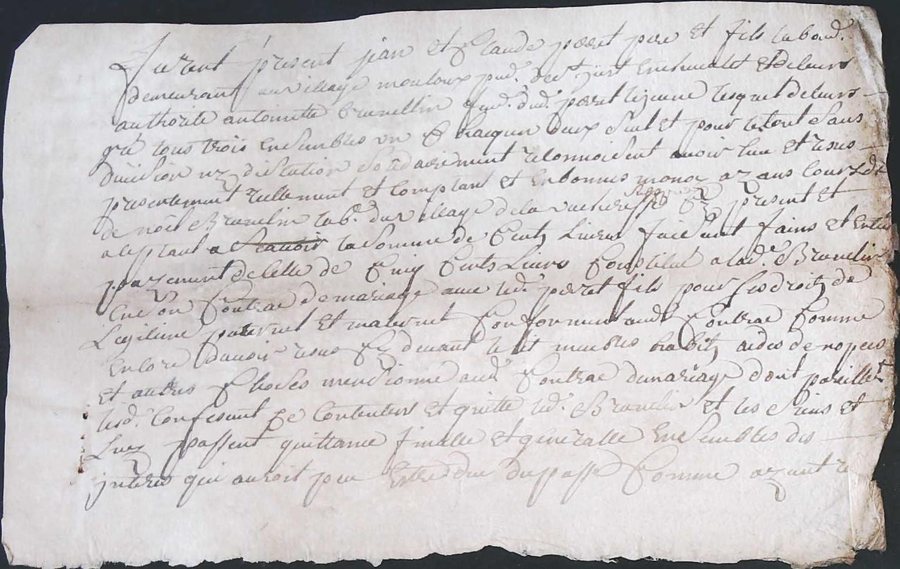 furent présent jean et Claude peret pere et fils labour.
demeurant au village mouloux p. de st just en chevalet et de leurs
authorité antoinette brunellin f. dud. peret lejeune lesquel de leurs
gré tous trois ensembles un et chacqun deux seul et pour le tout sans
division ny discution solidairement reconnoissent avoir heu et reçus
presentement reellement et comptant et en bonnes monoe ayans cours &
de noël Brunelin lab. du village de la vacheresse présent et
aceptant la somme de cent Livres faisant fains et entier
payement de celle de Cinq Cents Livres Constitué a lad. Brunelin
en son Contrac de mariage avec led. peret fils pour ses droits de
Legitime paternel et maternel Conformement aud. Contrac Comme
encore davoir reçus cy devant le lit meubles habits aides de nopces
et autres choses mentionné aud. Contrac de mariage dont pareillet
lesd. Confessent se Contenters et quitte led. Brunelin et les siens et
Luy passent quittance finalle et generalle ensembles des
jnterés qui auroit peu estre due du passé Comme ayant